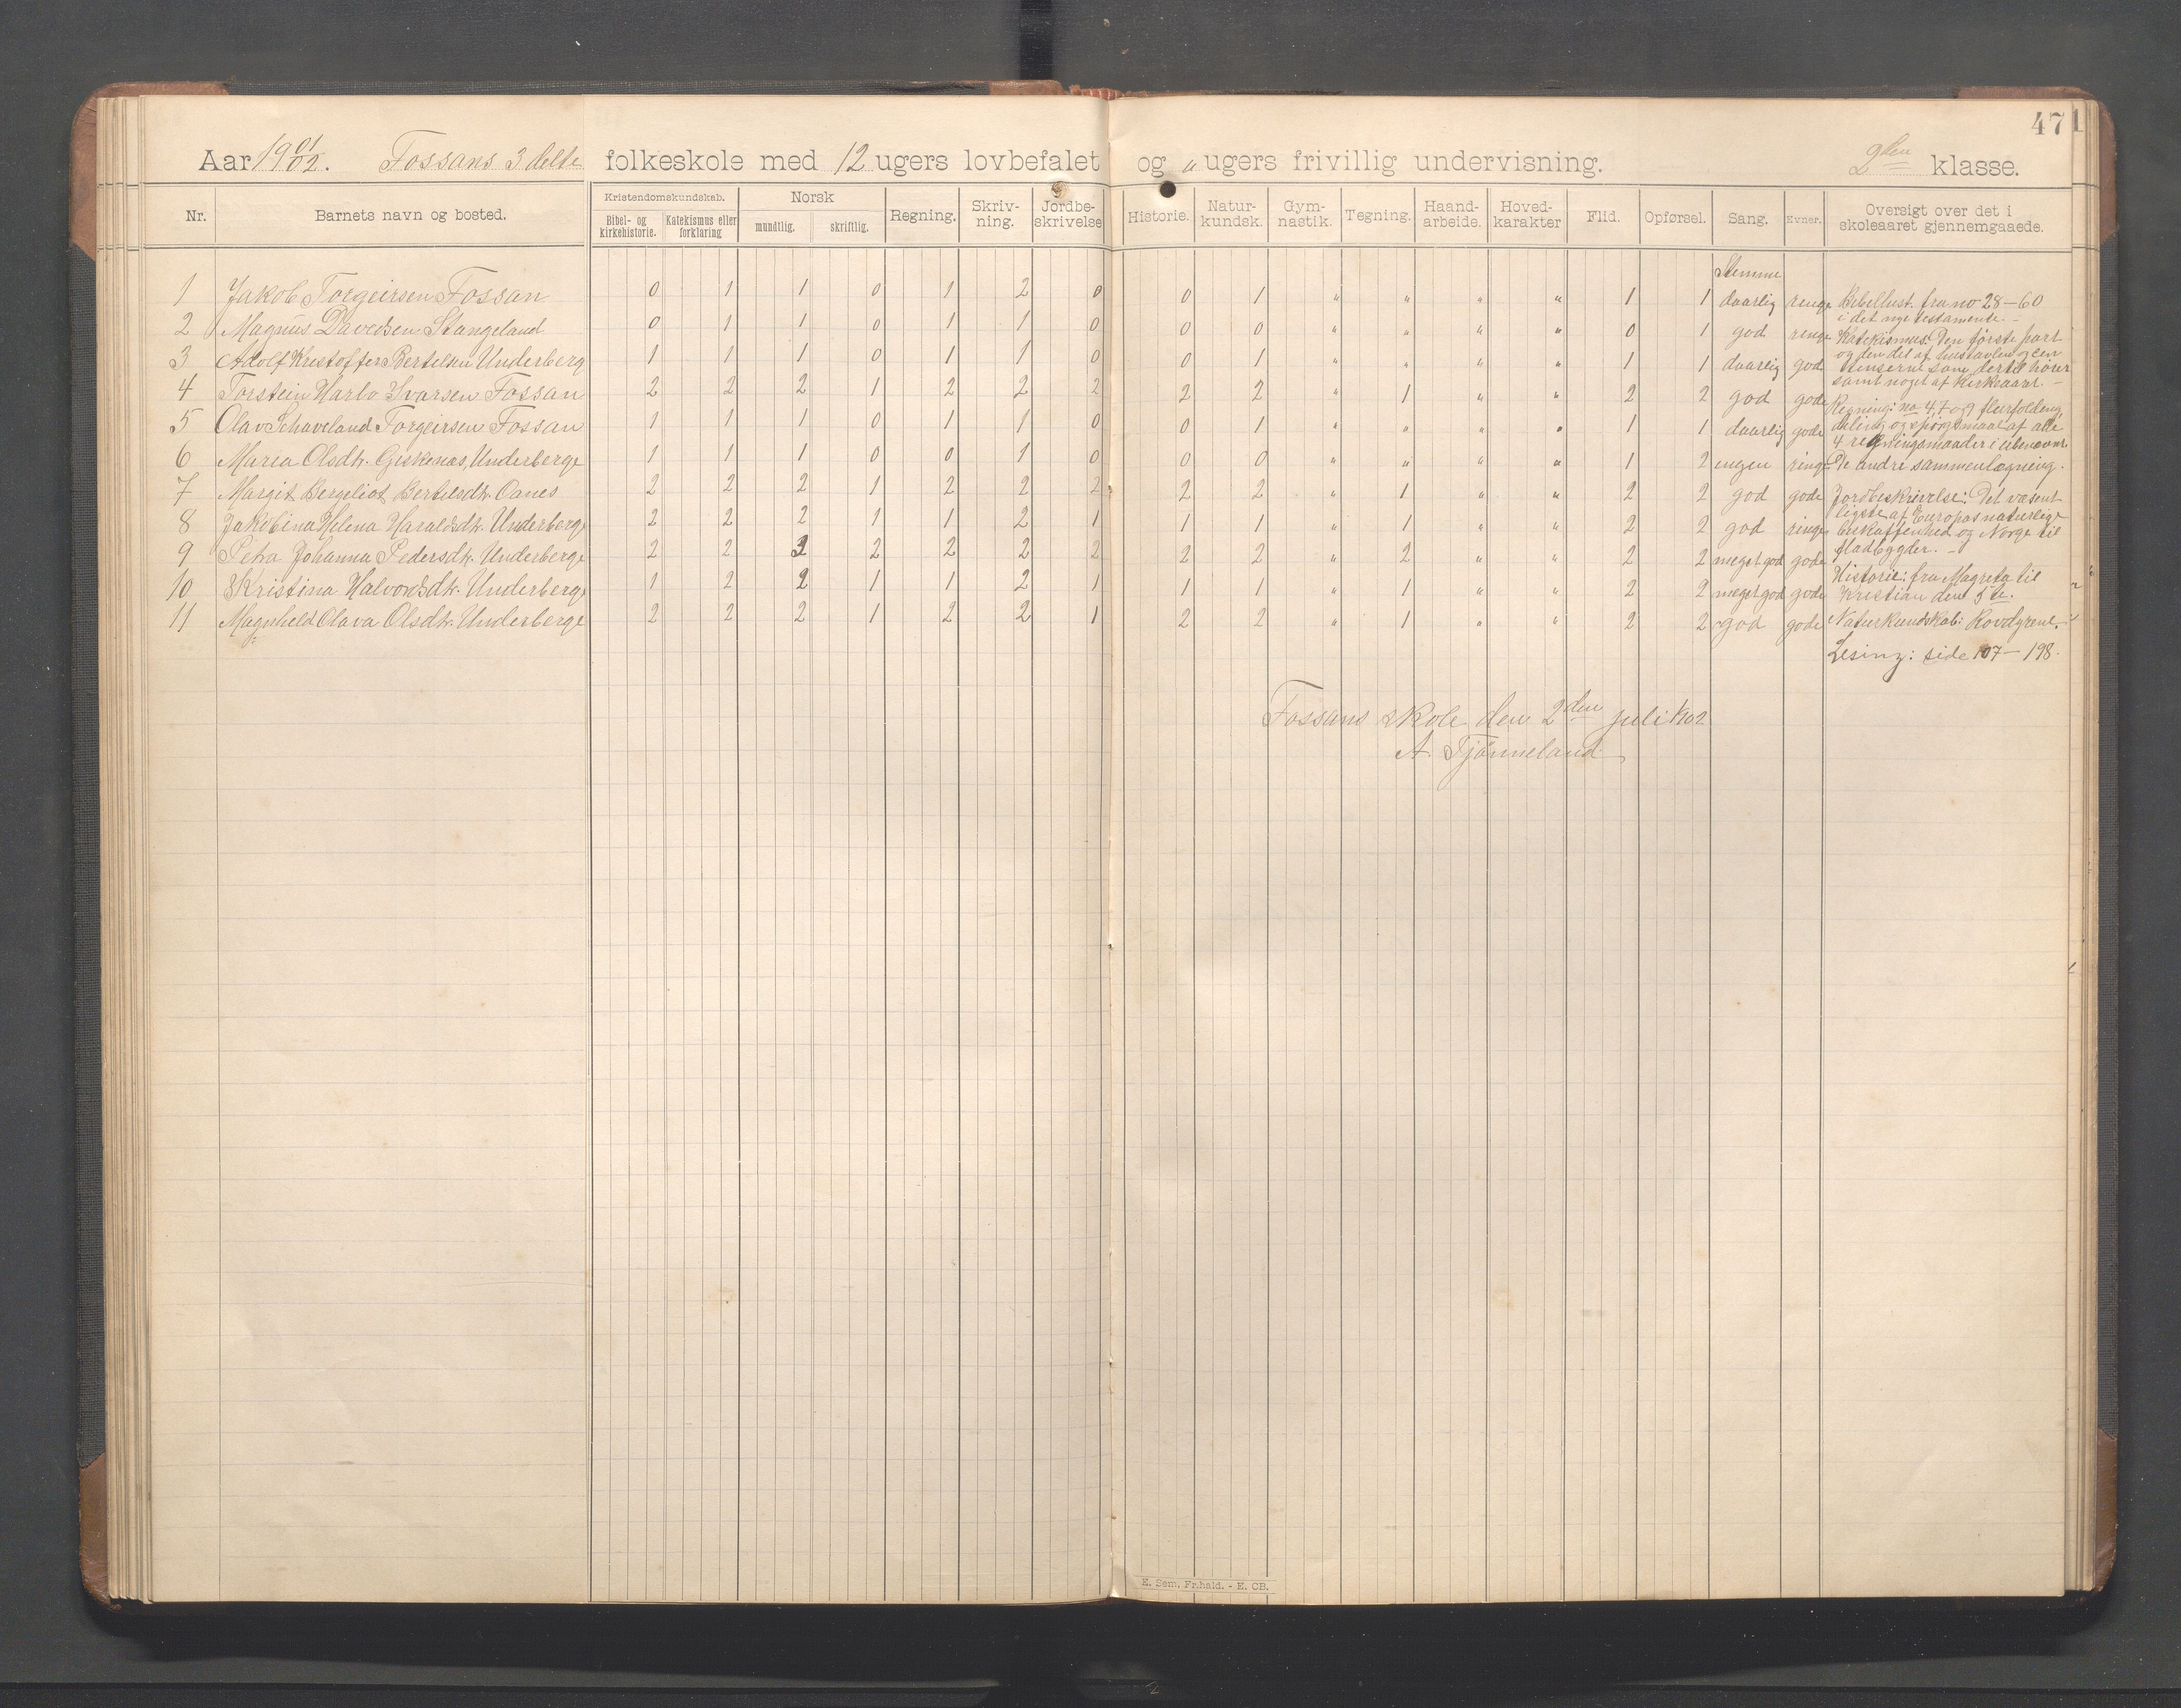 47
Aar 1901/02. Fossans 3 delte folkeskole med 12 ugers lovbefalet og " ugers frivillig undervisning. 2den klasse.
Nr. Barnets navn og bosted. Kristendomskundskab. Bibel- og kirkehistorie. Katekismus eller forklaring Norsk mundtlig. skriftlig. Regning. Skriv-ning. Jordbe-skrivelse Historie. Natur-kundsk. Gym-nastik. Tegning. Haand-arbeide. Hoved-karakter Flid. Opførsel. Sang. Evner. Oversigt over det i skoleaaret gjennemgaaede.
Stemme
1 Jakob Torgeirsen Fossan 0 1 1 0 1 2 0 0 1 " " " " 1 1 daarlig ringe
2 Magnus Davidsen Stangeland 0 1 1 0 1 1 0 0 0 " " " " 0 1 god ringe
3 Adolf Kristoffer Bertelsen Underberg 1 1 1 0 1 1 0 0 1 " " " " 1 1 daarlig god
4 Torstein Harbo Ivarsen Fossan 2 2 2 1 2 2 2 2 2 " 1 " " 2 2 god gode
5 Olav Schaveland Torgeirsen Fossan 1 1 1 0 1 1 0 0 1 " " " " 1 1 daarlig gode
6 Maria Olsdtr. Giskenas, Underberge 1 1 1 0 0 1 0 0 0 " " " " 1 2 ingen ringe
7 Margit Bergeliot Bertelsdtr. Oanes 2 2 2 1 2 2 2 2 2 " 1 " " 2 2 god gode
8 Jakobina Helena Haraldsdtr. Underberge 2 2 2 1 1 2 1 1 1 " 1 " " 2 2 god ringe
9 Petra Johanna Pedersdtr. Underberge 2 2 3 2 2 2 2 2 2 " 2 " " 2 2 meget god gode
10 Kristina Halvorsdtr. Underberge 1 2 2 1 1 2 1 1 1 " 1 " " 2 2 meget god gode
11 Magnhild Olava Olsdtr. Underberge 2 2 2 1 2 2 1 2 2 " 1 " " 2 2 god gode
Bibelhist. fra no 28–60
i det nye testamente. –
Katekismus: Den første part
og den del af hustavlen og
som dertil hører
samt noget af Kirkeaaret –
Regning: no 4, 7 og 9 flerfolding,
deling og spørgsmaal af alle
4 regningsmaader i ubenævnt.
De andre sammenlægning.
Jordbeskrivelse: Det væsent
ligste af Europas naturlige
beskaffenhed og Norge til
fladbygder. –
Historie: fra Magreta til
Kristian den 5te.
Naturkundskab: Rovdyrene.
Lesing: side 107–198.
Fossans skole den 2den juli 1902
A. Tjønneland
E. Sem, Fr.hald. - E. CB.